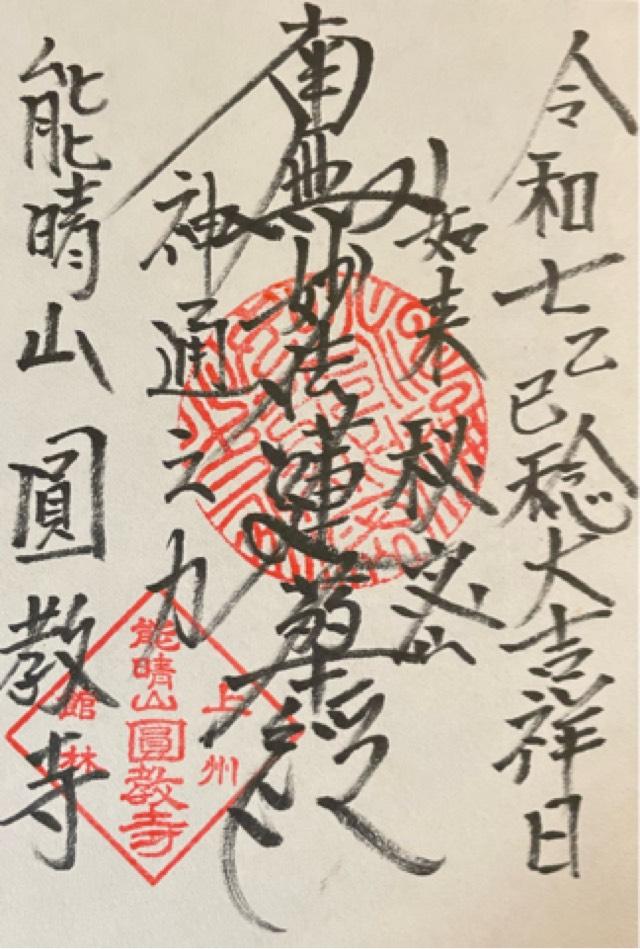 令和七乙巳稔大吉祥日
如来秘密
南無妙法蓮華経
神通之力
能晴山 圓教寺
上州
能晴山圓教寺
館林